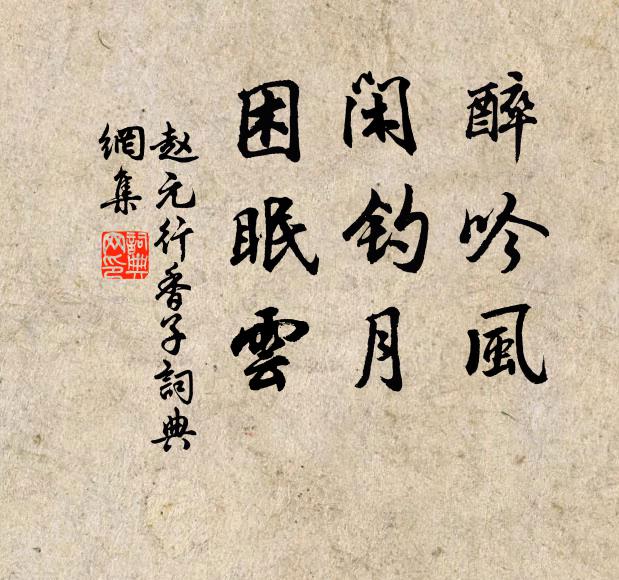 醉吟風
閑釣月
困眠雲
赵元行香子詞典
網集
詞典
网印